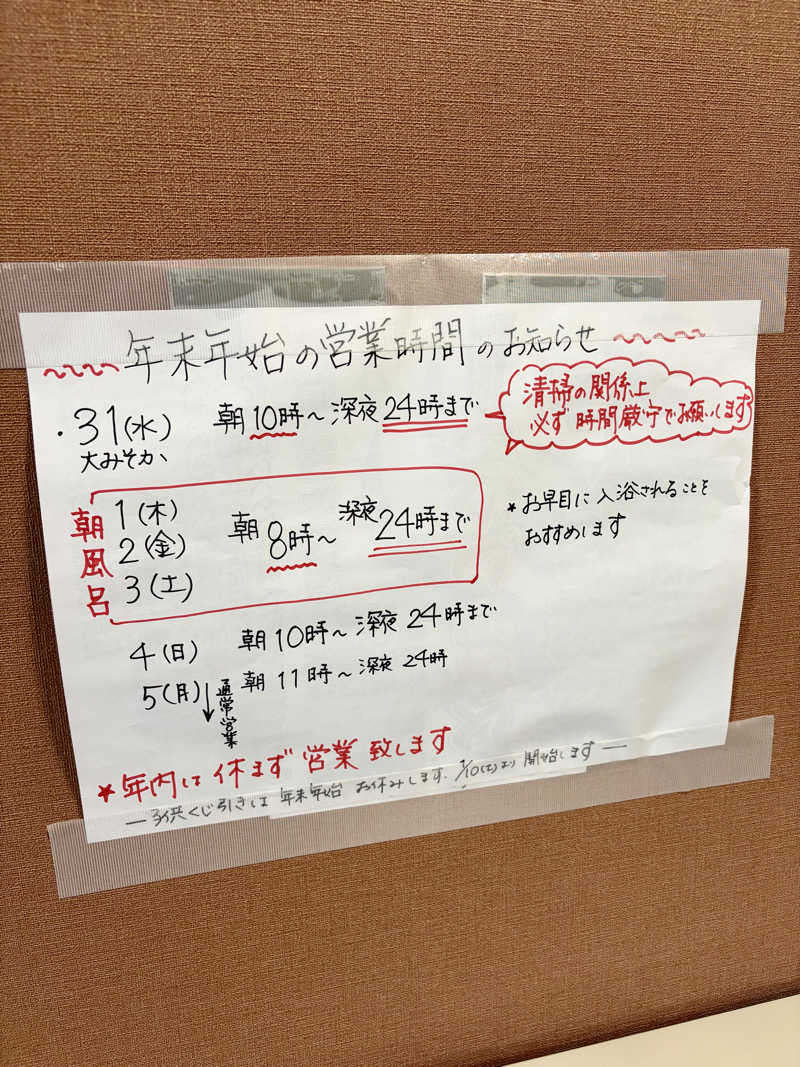 年末年始の営業時間のお知らせ
・31(水) 朝10時〜深夜24時まで
大みそか
清掃の関係上
必ず時間厳守でお願いします
*お早目に入浴されることを
おすすめします
朝風呂
1(木)
2(金) 朝8時〜深夜24時まで
3(土)
4(日) 朝10時〜深夜24時まで
5(月) 朝11時〜深夜24時
↓通常営業
*年内は休まず営業致します
―子供くじ引きは年末年始お休みします。1/10(土)より開始します―